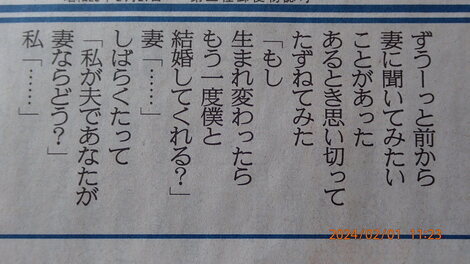 ずうーっと前から
妻に聞いてみたい
ことがあった
あるとき思い切って
たずねてみた
「もし
生まれ変わったら
もう一度僕と
結婚してくれる?」
妻「……」
しばらくたって
「私が夫であなたが
妻ならどう?」
私「……」
2024/02/01 11:23